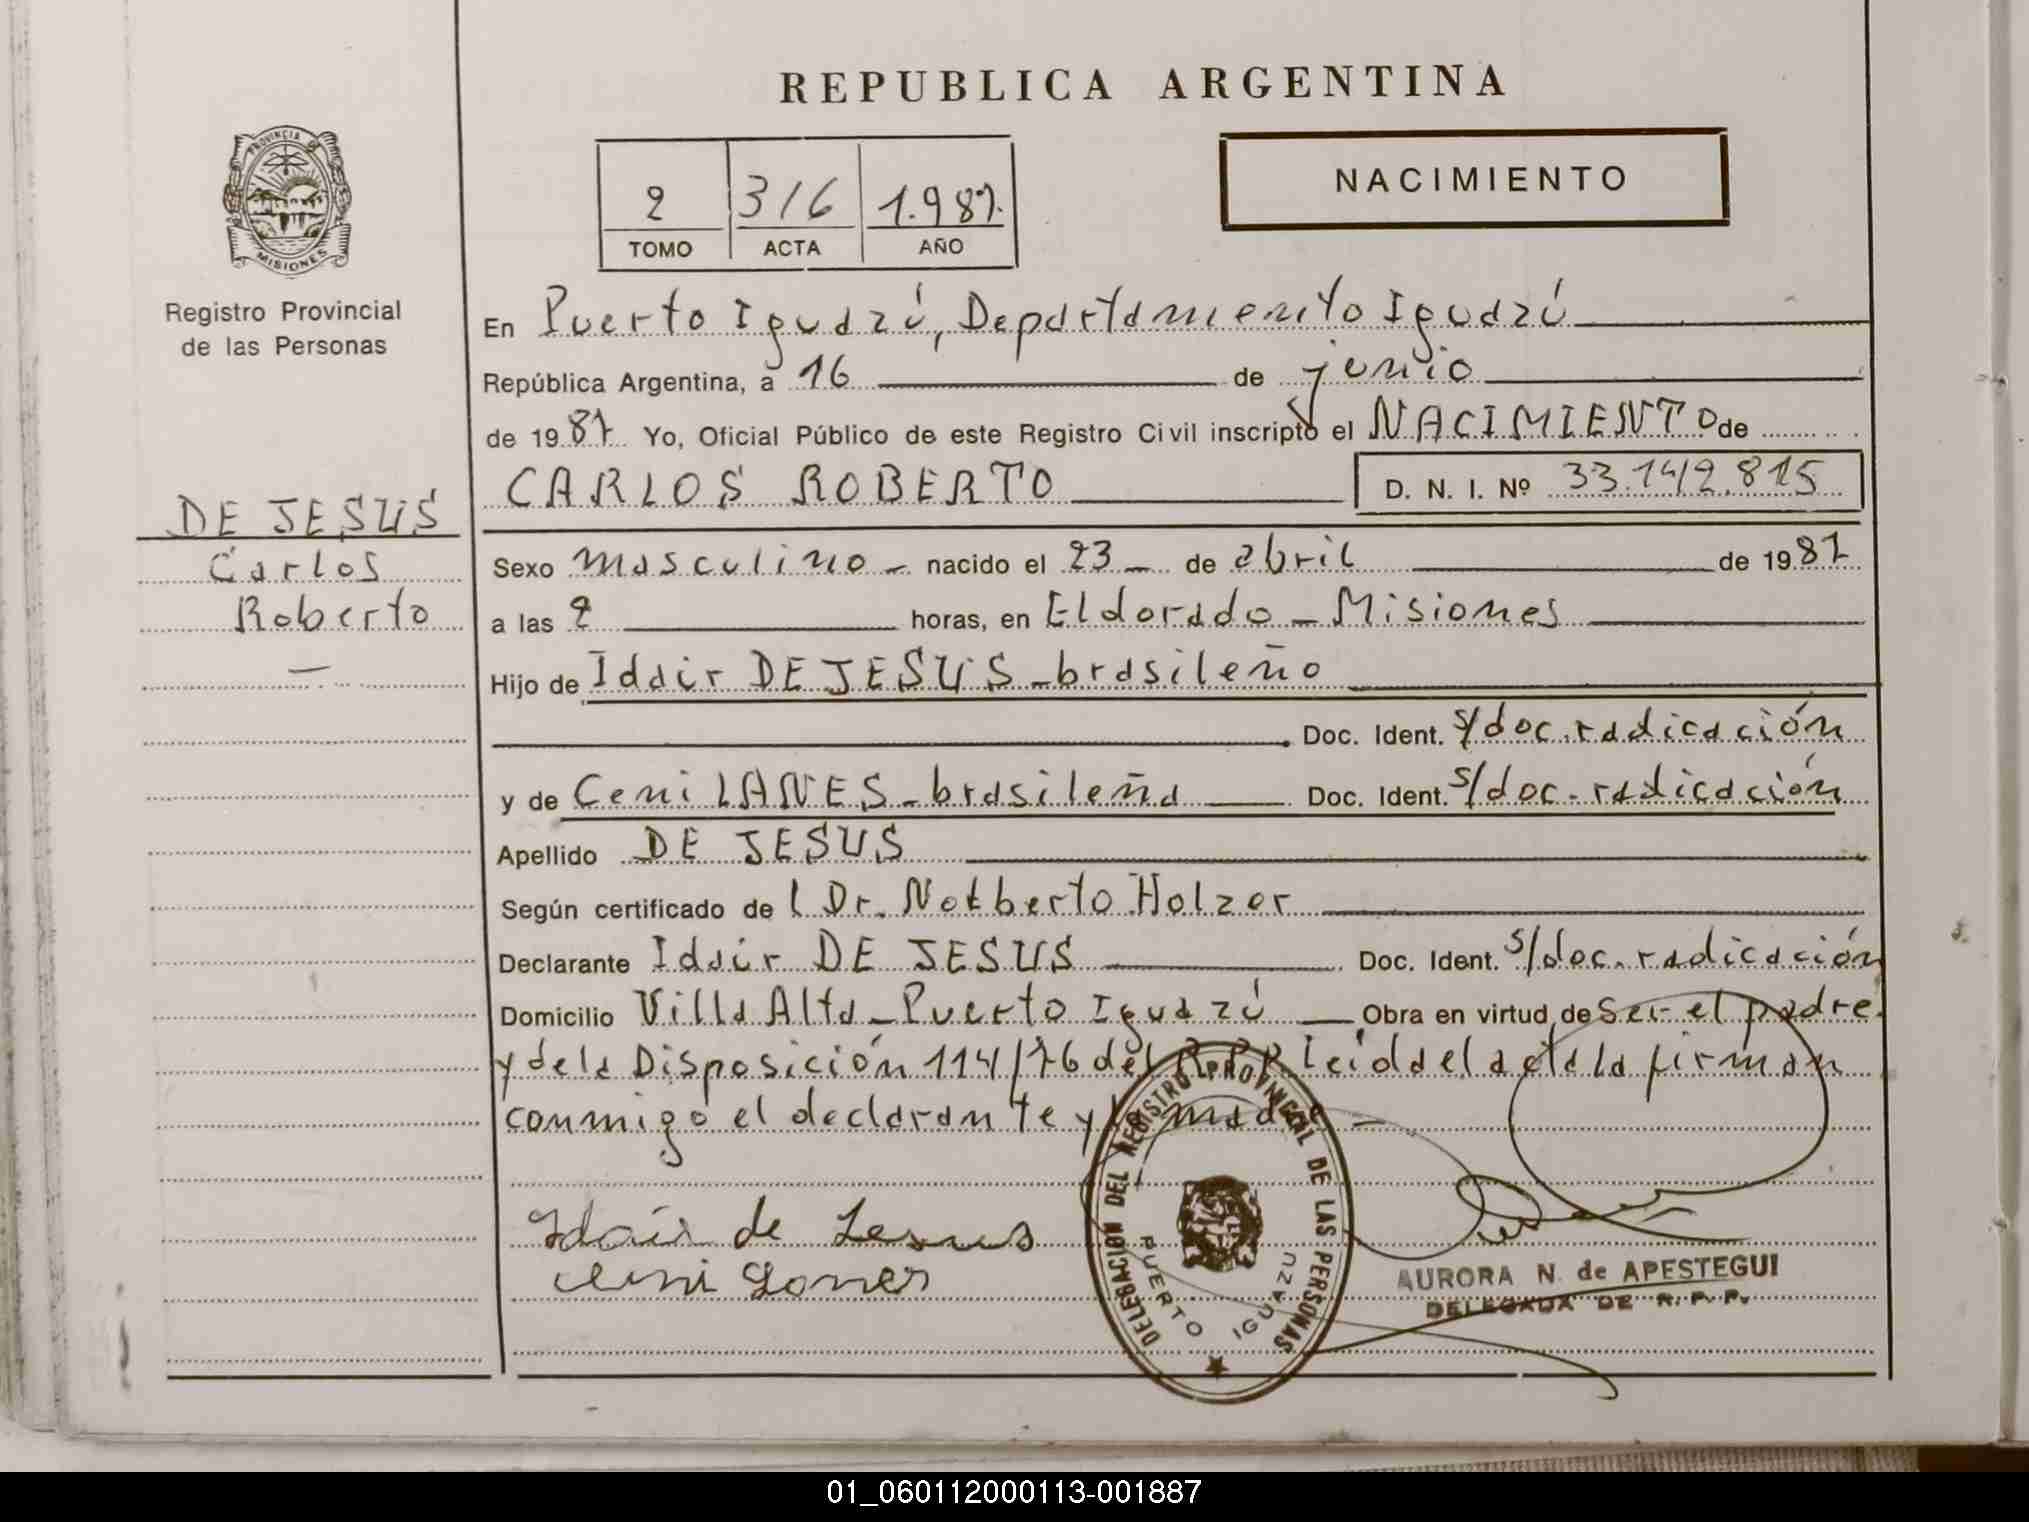 REPUBLICA ARGENTINA
PROVINCIA DE MISIONES
Registro Provincial
de las Personas
2 316 1.987.
TOMO ACTA AÑO
NACIMIENTO
En Puerto Iguazú, Departamento Iguazú
República Argentina, a 16 de junio
de 1987 Yo, Oficial Público de este Registro Civil inscripto el NACIMIENTO de
CARLOS ROBERTO D. N. I. Nº 33.142.815
DE JESUS
Carlos
Roberto
Sexo masculino - nacido el 23 - de abril de 1987
a las 2 horas, en Eldorado - Misiones
Hijo de Idair DE JESUS - brasileño
Doc. Ident. s/doc. radicación
y de Ceni LANES - brasileña Doc. Ident. s/doc. radicación
Apellido DE JESUS
Según certificado de l Dr. Notberto Holzer
Declarante Idair DE JESUS Doc. Ident. s/doc. radicación
Domicilio Villa Alta - Puerto Iguazú Obra en virtud de Ser el padre
y de la Disposición 114/76 del R.P.P. Leída el acta la firman
conmigo el declarante y la madre
Idair de Jesus
DELEGACION DEL REGISTRO PROVINCIAL DE LAS PERSONAS
PUERTO IGUAZU
AURORA N. de APESTEGUI
DELEGADA DE R. P. P.
01_060112000113-001887